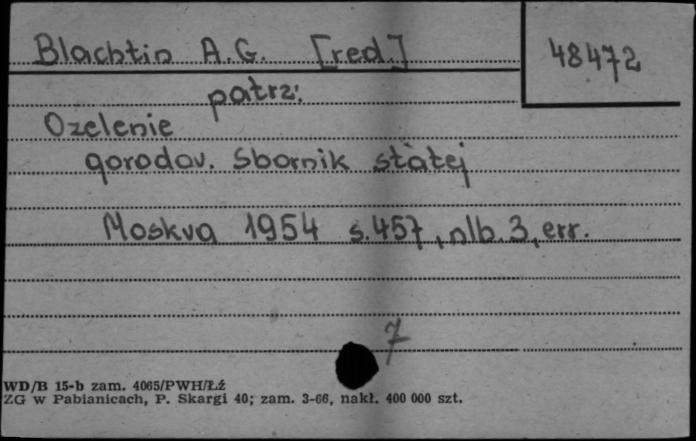 Blachtin A.G. [red.]
48472
patrz:
Ozelenie
gorodov. Sbornik statej
Moskva 1954 s.457, nlb.3, err.
7
WD/B 15-b zam. 4065/PWH/Łź
ZG w Pabianicach, P. Skargi 40; zam. 3-66, nakł. 400 000 szt.